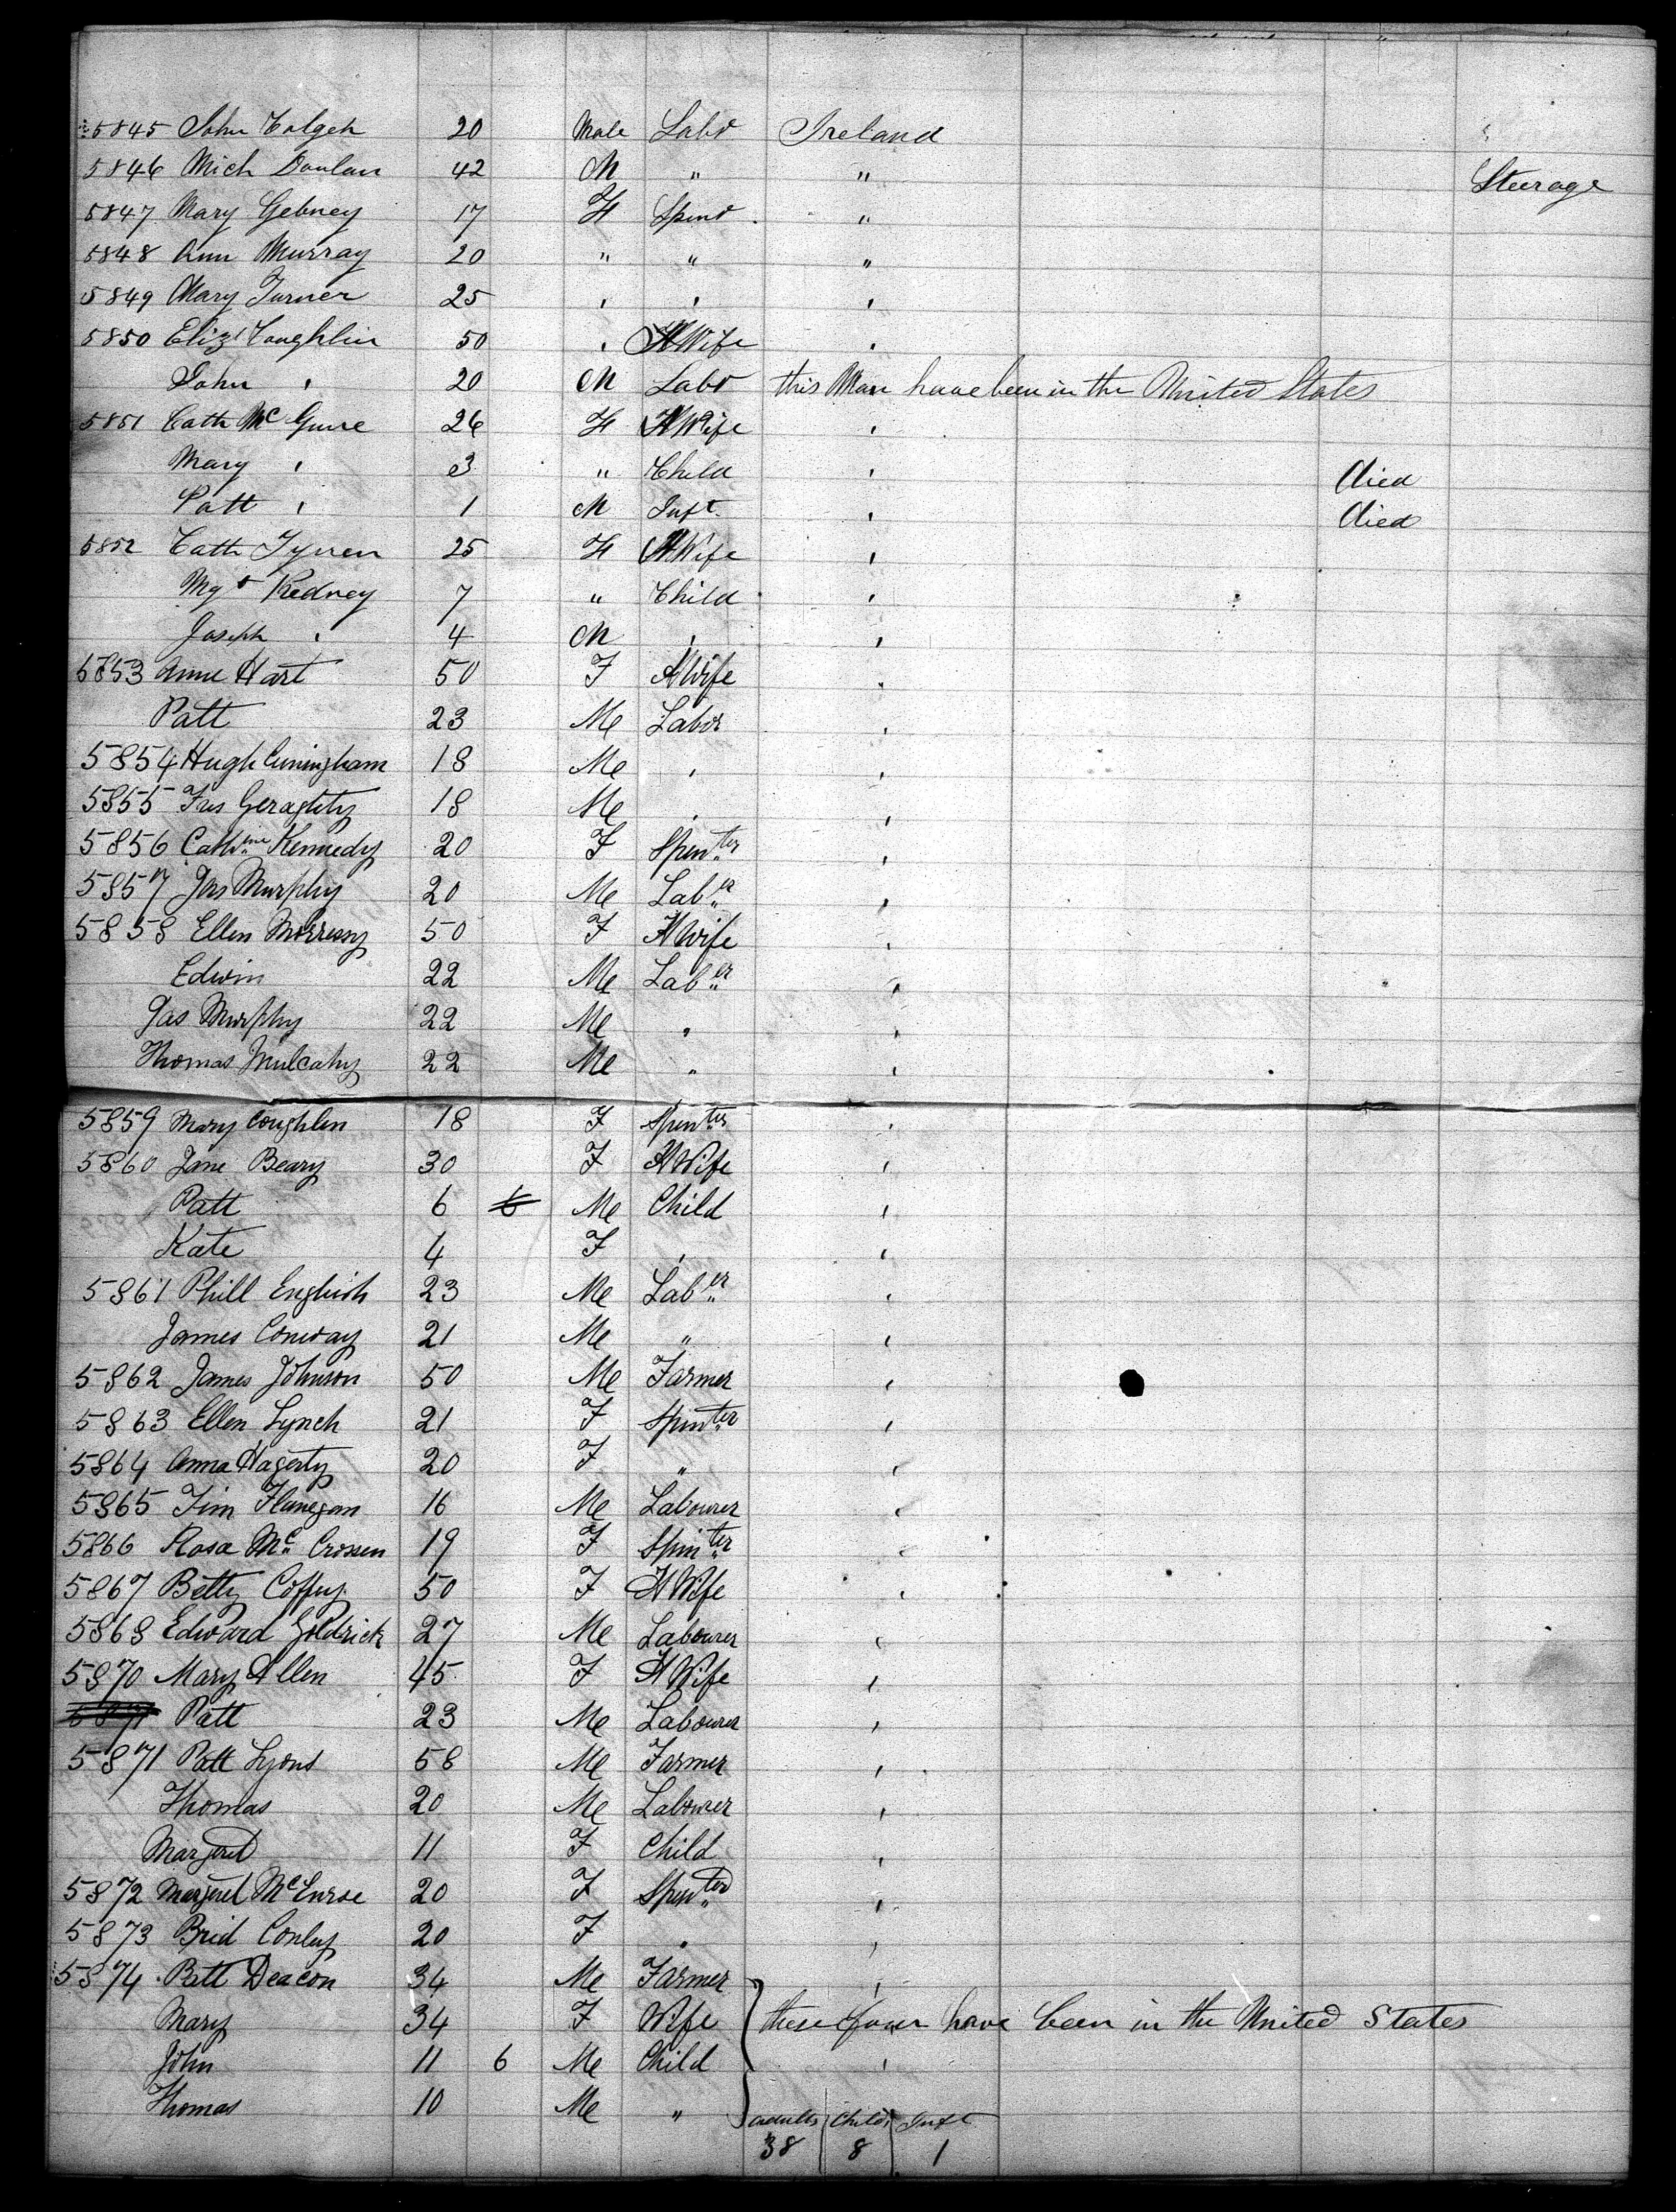 5845 John Colgeh 20 Male Labr Ireland
5846 Mich Donlan 42 M " " Steerage
5847 Mary Gebney 17 F Spinr "
5848 Ann Murray 20 " " "
5849 Mary Turner 25 " " "
5850 Eliz Coughlin 50 " HWife "
John " 20 M Labr this Man have been in the United States
5851 Cath Mc Guire 26 F HWife "
Mary " 3 " Child " died
Patt " 1 M Inft. " died
5852 Cath 25 F HWife "
Mgt Kedney 7 " Child "
Joseph " 4 M " "
5853 Anne Hart 50 F HWife "
Patt 23 Me Labor "
5854 Hugh Cuningham 18 Me " "
5855 Frs Geraghty 18 Me " "
5856 Cathine Kennedy 20 F Spinter "
5857 Jas Murphy 20 Me Laber "
5858 Ellen Morressy 50 F HWife "
Edwin 22 Me Laber "
Jas Murphy 22 Me " "
Thomas Mulcahy 22 Me " "
5859 Mary Coughlin 18 F Spinter "
5860 Jane Beary 30 F HWife "
Patt 6 6 Me Child "
Kate 4 F " "
5861 Phill English 23 Me Laber "
James Conway 21 Me " "
5862 James Johnson 50 Me Farmer "
5863 Ellen Lynch 21 F Spinter "
5864 Anna Hagerty 20 F " "
5865 Tim Flanegan 16 Me Labourer "
5866 Rosa Mc Crossen 19 F Spinter "
5867 Betty Coffey 50 F HWife "
5868 Edward Goldrick 27 Me Labourer "
5870 Mary Allen 45 F HWife "
5871 Patt 23 Me Labourer "
5871 Patt Lyons 58 Me Farmer "
Thomas 20 Me Labourer "
Margret 11 F Child "
5872 Margret 20 F Spinter "
5873 Brid Conley 20 F " "
5874 Patt Deacon 34 Me Farmer "
Mary 34 F Wife these four have been in the United States
John 11 6 Me Child "
Thomas 10 Me "
adults Childs Inft
38 8 1